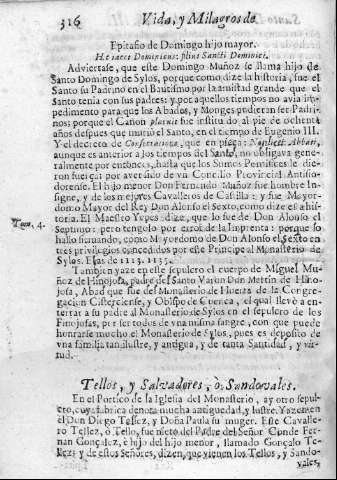 316 Vida, y Milagros de
Epitafio de Domingo hijo mayor.
Hic iacet Dominicus: filius Sancti Dominici.
Adviertase, que este Domingo Muñoz se llama hijo de
Santo Domingo de Sylos, porque como dize la historia, fue el
Santo su Padrino en el Bautismo por la amistad grande que el
Santo tenia con sus padres: y por aquellos tiempos no avia impedimento
para que los Abades, y Monges pudieran ser Padrinos:
porque el Canon placuit fue instituido al pie de ochenta
años despues que murió el Santo, en el tiempo de Eugenio III.
Y el decreto de que en pieça:
aunque es anterior a los tiempos del Santo, no obligava generalmente
por entonces, hasta que los Sumos Pontifices le dieron
fuerça: por aversido de vn Concilio Provincial Antisiodorense.
El hijo menor Don Fernando Muñoz fue hombre Insigne,
y de los mejores Cavalleros de Castilla: y fue Mayordomo
Mayor del Rey Don Alonso el Sexto, como dize esta historia.
Tom. 4. El Maestro Yepes dize, que lo fue de Don Alonso el
Septimo: pero tengolo por error de la Imprenta: porque lo
hallo firmando, como Mayordomo de Don Alonso el Sexto en
tres privilegios concedidos por este Principe al Monasterio de
Sylos. Eras de 1113. 1135.
Tambien yaze en este sepulcro el cuerpo de Miguel Muñoz
de Hinojosa, padre del Santo Varon Don Martin de Hinojosa,
Abad que fue del Monasterio de Huerta de la Congregacion
Cisterciense, y Obispo de el qual llevó a enterrar
a su padre al Monasterio de Sylos en el sepulcro de los
Finojosas, por ser todos de vna misma sangre, con que puede
honrarse mucho el Monasterio de Sylos, pues es deposito de
vna familia tan ilustre, y antigua, y de tanta Santidad, y virtud.
Tellos, y Salvadores, ò Sandovales.
En el Portico de la Iglesia del Monasterio, ay otro sepulcro,
cuya fabrica denota mucha antiguedad, y lustre. Yazen en
el Don Diego Tellez, y Doña Paula su muger. Este Cavallero
Tellez, ò Tello, fue nieto del Padre del Señor Conde Fernan
Gonçalez, è hijo del hijo menor, llamado Gonçalo Tellez:
y de estos Señores, dizen, que vienen los Tellos, y Sandovales,